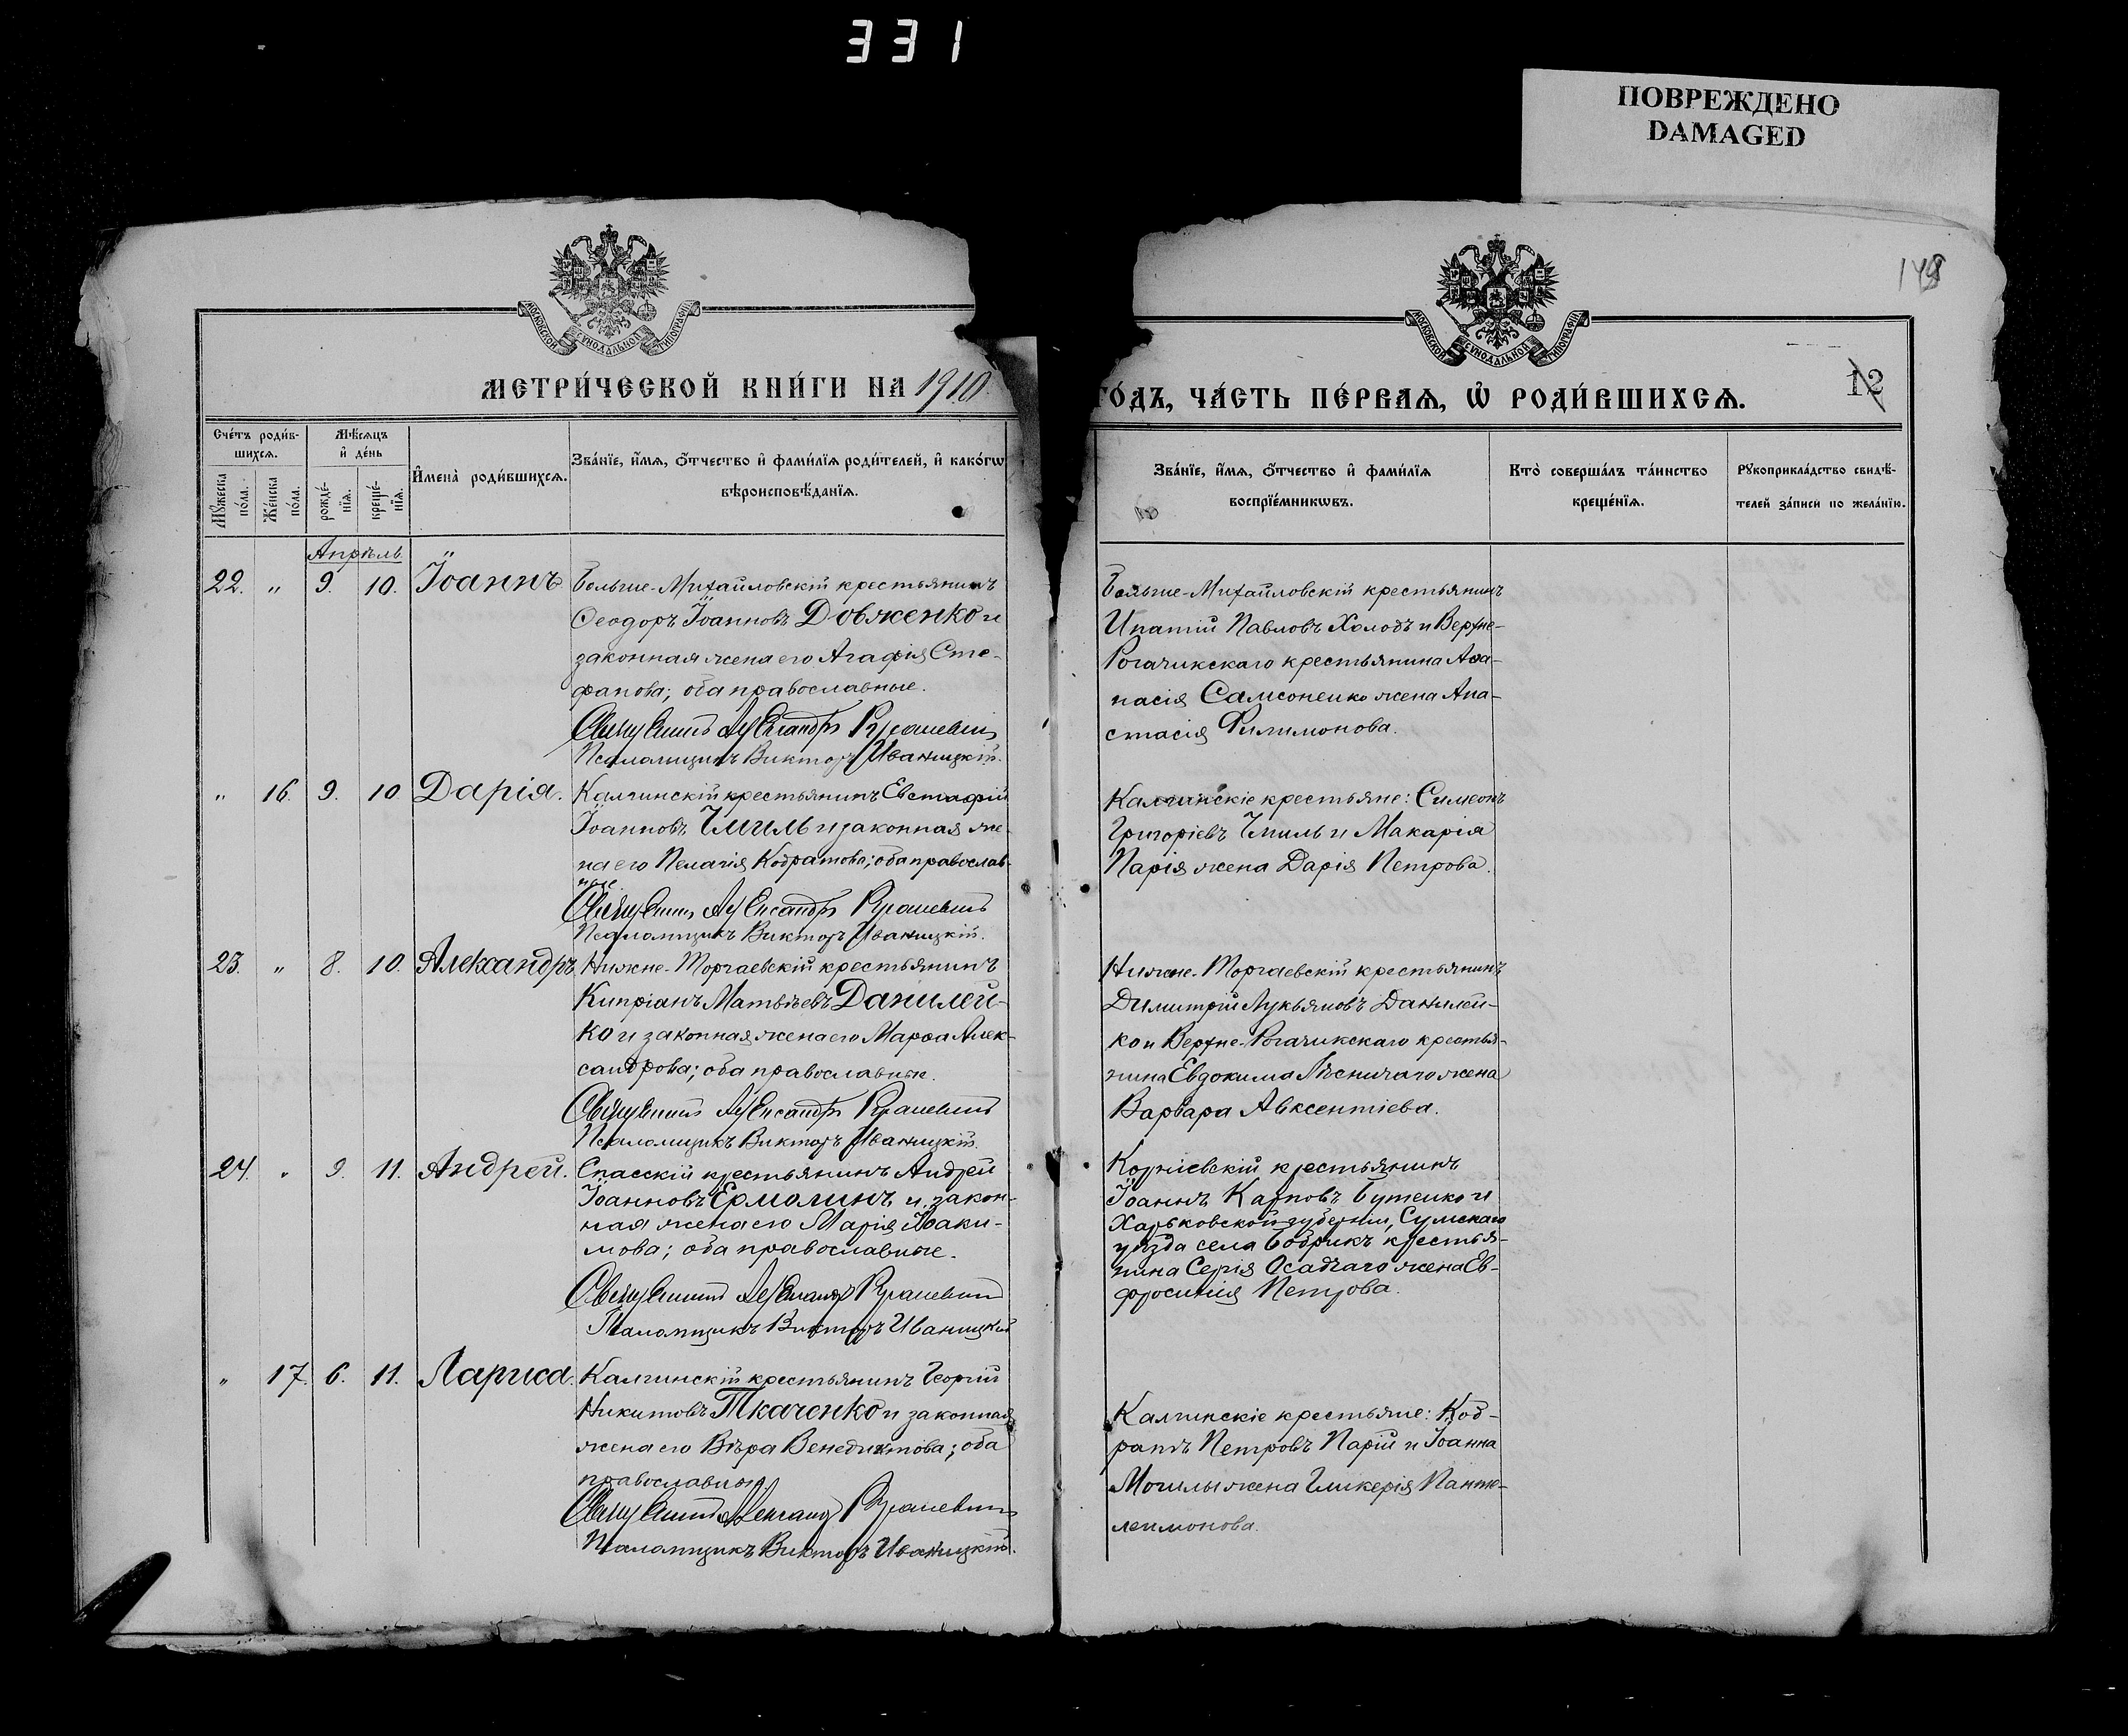 331
ПОВРЕЖДЕНО
DAMAGED
148
МОСКОВСКОЙ СУНОДАЛЬНОЙ ТИПОГРАФІИ
МОСКОВСКОЙ СУНОДАЛЬНОЙ ТИПОГРАФІИ
МЕТРИ́ЧЕСКОЙ КНИ́ГИ НА 1910
ГО́ДЪ, ЧА́СТЬ ПЕ́РВАѦ, Ѡ҆ РОДИ́ВШИХСѦ.
12
Сче́тъ роди́в-
шихсѧ.
Мꙋ́жеска
по́ла.
Же́нска
по́ла.
Мѣ́сѧцъ
и҆ де́нь
рожде́-
нїѧ.
креще́-
нїѧ.
И҆мена̀ роди́вшихсѧ.
Зва́нїе, и҆́мѧ, ѻ҆́тчество и҆ фами́лїѧ роди́телей, и҆ како́гѡ
вѣроисповѣ́данїѧ.
Зва́нїе, и҆́мѧ, ѻ҆́тчество и҆ фами́лїѧ
воспрїе́мникѡвъ.
Кто̀ соверша́лъ та́инство
креще́нїѧ.
Рꙋкоприкла́дство свидѣ́-
телей за́писи по жела́нїю.
Апрѣль
22. " 9. 10. Іоаннъ
Больше-Михайловскій крестьянинъ
Ѳеодоръ Іоанновъ Довженко и
законная жена его Агафія Сте-
фанова; оба православные.
Священникъ Александръ
Псаломщикъ Викторъ Иваницкій.
Больше-Михайловскій крестьянинъ
Ипатій Павловъ Холодъ и Верхне-
Рогачикскаго крестьянина Аѳа-
насія Самсоненко жена Ана-
стасія Филимонова.
" 16. 9. 10 Дарія.
Калгинскій крестьянинъ Евстафій
Іоанновъ Чмиль и законная же-
на его Пелагія Кодратова; оба православ-
ные.
Священникъ Александръ
Псаломщикъ Викторъ Иваницкій.
Калгинскіе крестьяне: Симеонъ
Григоріевъ Чмиль и Макарія
Парія жена Дарія Петрова.
23. " 8. 10. Александръ
Нижне-Торгаевскій крестьянинъ
Кипріанъ Матвѣевъ Данилей-
ко и законная жена его Марѳа Алек-
сандрова; оба православные.
Священникъ Александръ
Псаломщикъ Викторъ Иваницкій.
Нижне-Торгаевскій крестьянинъ
Димитрій Лукьяновъ Данилей-
ко и Верхне-Рогачикскаго крестья-
нина Евдокима Лѣсничаго жена
Варвара Авксентіева.
24. " 9. 11. Андрей.
Спасскій крестьянинъ Андрей
Іоанновъ Ермолинъ и закон-
ная жена его Марія Іоаки-
мова; оба православные.
Священникъ Александръ
Псаломщикъ Викторъ Иваницкій
Корніевскій крестьянинъ
Іоаннъ Карповъ Бутенко и
Харьковской губерніи, Сумскаго
уѣзда села Бобрикъ крестья-
нина Сергія Осадчаго жена Ев-
фросинія Петрова.
" 17. 6. 11. Лариса.
Калгинскій крестьянинъ Георгій
Никитовъ Ткаченко и законная
жена его Вѣра Венедиктова; оба
православные.
Священникъ Александръ
Псаломщикъ Викторъ Иваницкій.
Калгинскіе крестьяне: Код-
ратъ Петровъ Парій и Іоанна
Могилы жена Гликерія Панте-
леимонова.